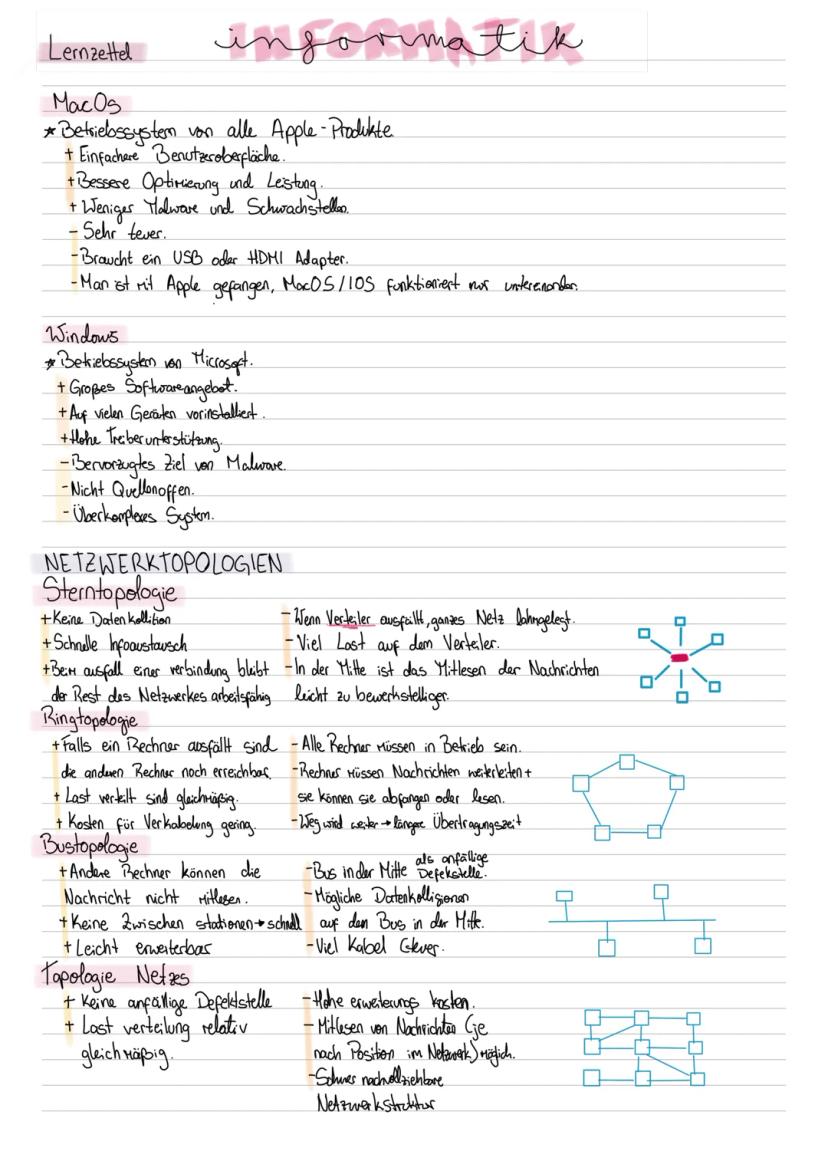 Lernzettel
INFORMATIK
informatik
MacOs
* Betriebssystem von alle Apple-Produkte
+ Einfachere Benutzeroberfläche.
+ Bessere Optimierung und Leistung.
+ Weniger Malware und Schwachstellen.
- Sehr teuer.
- Braucht ein USB oder HDMI Adapter.
- Man ist mit Apple gefangen, MacOS/IOS funktioniert nur untereinander.
Windows
* Betriebssystem von Microsoft.
+ Großes Softwareangebot.
+ Auf vielen Geräten vorinstalliert.
+ Hohe Treiberunterstützung.
- Bervorzugtes Ziel von Malware.
- Nicht Quellenoffen.
- Überkomplexes System.
NETZWERKTOPOLOGIEN
Sterntopologie
+ Keine Datenkollition
+ Schnelle Infoaustausch
+ Beim ausfall einer verbindung bleibt
der Rest des Netzwerkes arbeitsfähig
- Wenn Verteiler ausfällt, ganzes Netz lahmgelegt.
- Viel Last auf dem Verteiler.
- In der Mitte ist das Mitlesen der Nachrichten
leicht zu bewerkstelligen.
Ringtopologie
+ Falls ein Rechner ausfällt sind
die anderen Rechner noch erreichbar.
+ Last verteilt sind gleichmäßig.
+ Kosten für Verkabelung gering.
- Alle Rechner müssen in Betrieb sein.
- Rechner müssen Nachrichten weiterleiten +
sie können sie abfangen oder lesen.
- Weg wird weiter → längere Übertragungszeit
Bustopologie
+ Andere Rechner können die
Nachricht nicht mitlesen.
+ Keine Zwischen stationen → schnell
+ Leicht erweiterbar
- Bus in der Mitte als anfällige
Defekstelle.
- Mögliche Datenkolligionen
auf den Bus in der Mitte.
- Viel Kabel teuer.
Topologie Netzes
+ Keine anfällige Defektstelle
+ Last verteilung relativ
gleichmäßig.
- Hohe erweiterungs kosten.
- Mitlesen von Nachrichten (je
nach Position im Netzwerk) möglich.
- Schwer nachvollziehbare
Netzwerkstruktur